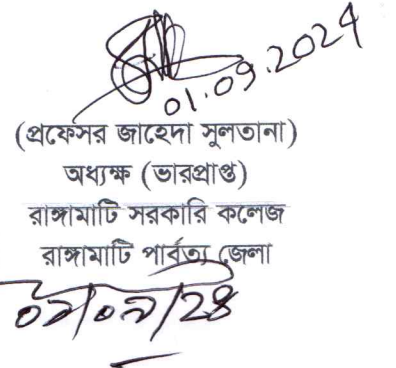 01.09.2024
(প্রফেসর জাহেদা সুলতানা)
অধ্যক্ষ (ভারপ্রাপ্ত)
রাঙ্গামাটি সরকারি কলেজ
রাঙ্গামাটি পার্বত্য জেলা